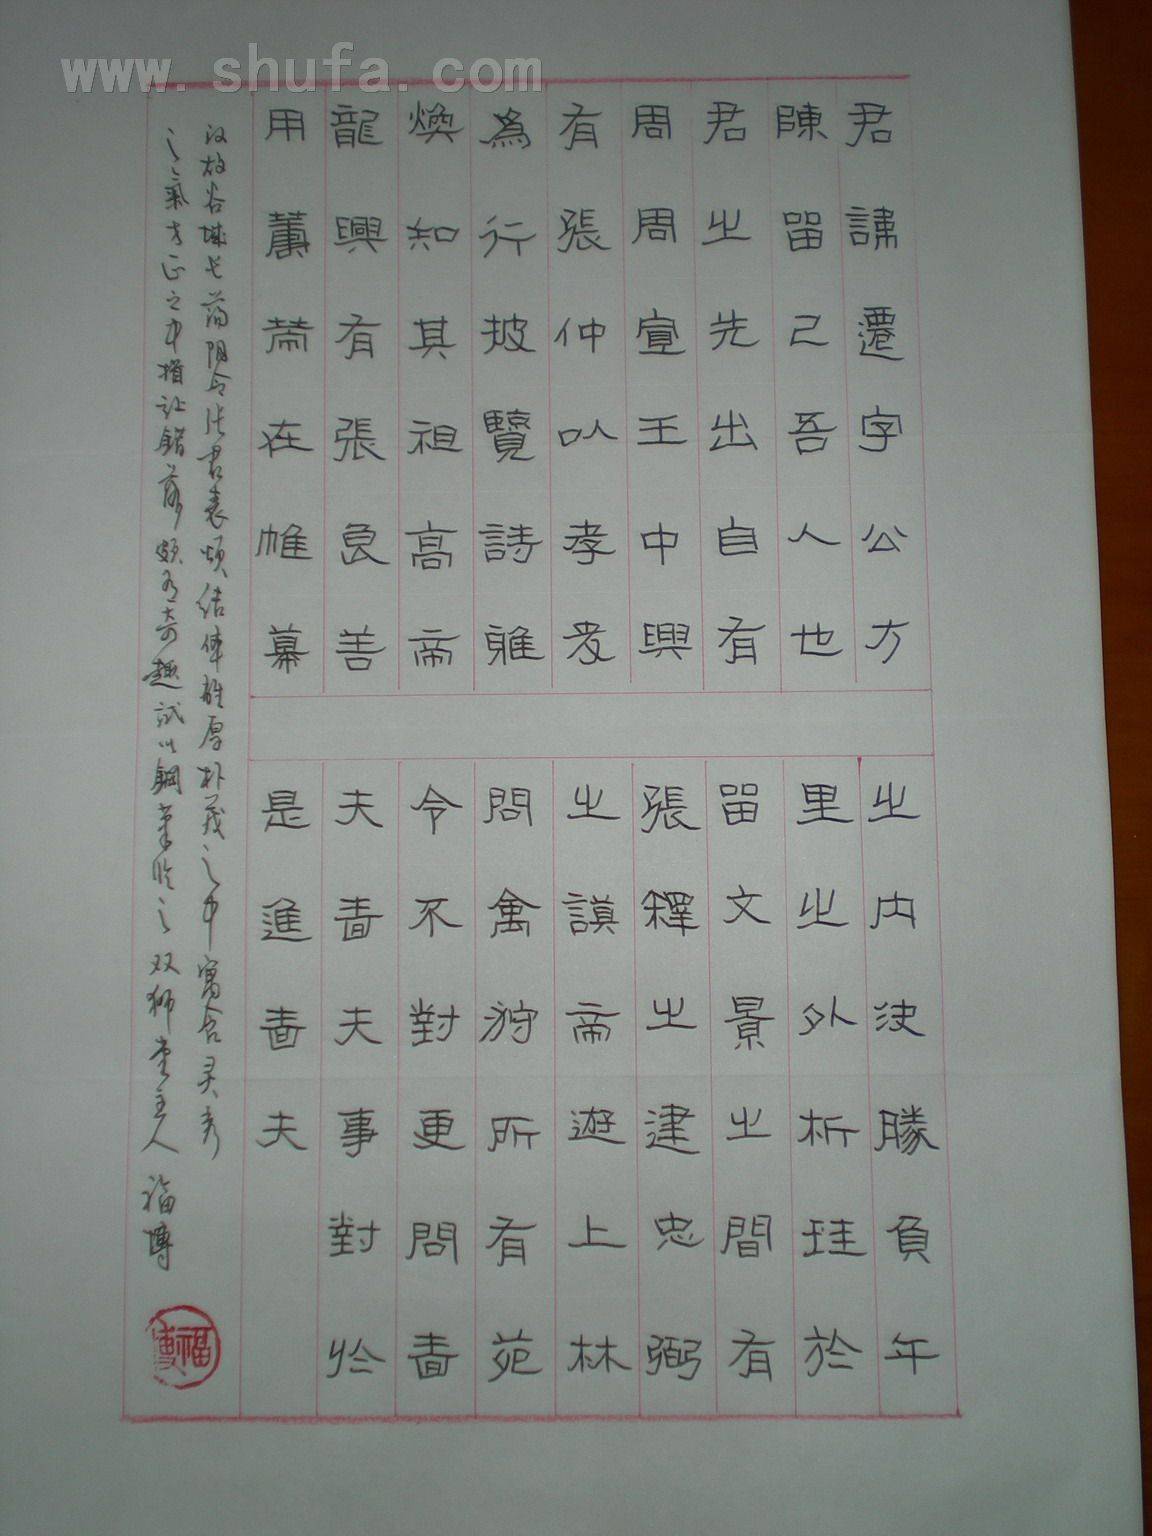 www.shufa.com
君諱遷字公方
陳留己吾人也
君之先出自有
周周宣王中興
有張仲以孝友
為行披覽詩雅
煥知其祖高帝
龍興有張良善
用籌策在帷幕
之内決勝負千
里之外析珪於
留文景之間有
張釋之建忠弼
之謨帝遊上林
問禽狩所有苑
令不對更問嗇
夫嗇夫事對於
是進嗇夫
汉故谷城长荡阴令张君表颂结体雄厚朴茂之中寓含灵秀
之氣方正之中揖让错落颇有奇趣试以钢筆临之双狮堂主人福博
福博